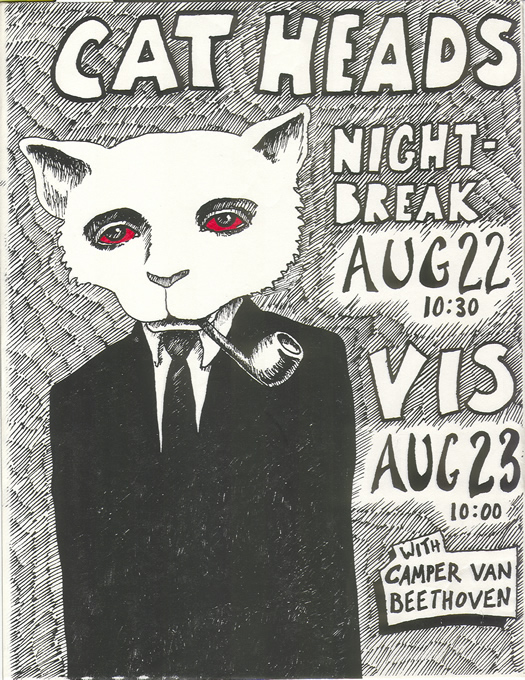 CAT HEADS
NIGHT-
BREAK
AUG 22
10:30
VIS
AUG 23
10:00
WITH
CAMPER VAN
BEETHOVEN